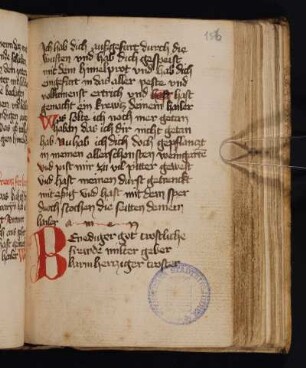 156
Ich hab dich außgefurt durch die
wusten vnd hab dich gespeist
mit dem himelprot vnd hab dich
eingefurt in das aller peste vnd
volkumenst ertrich vnd hast
gemacht ein krewtz deinem hailer
Was solt ich noch mer getan
haben das ich dir nicht getan
hab Nu hab ich dich doch gepflantzt
in meinen allerschonsten weingarte
vnd pist mir zu vil pitter gewest
vnd hast meinen durst getrenckt
mit essig vnd hast mit dem sper
durchstochen die seitten deinem
hailer a m e n
Benediger got trostliche
freude milter geber
barmhertziger troster